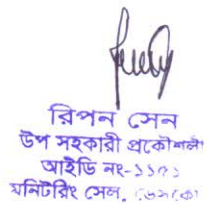 রিপন সেন
উপ সহকারী প্রকৌশলী
আইডি নং-১১৫১
মনিটরিং সেল, ডেসকো